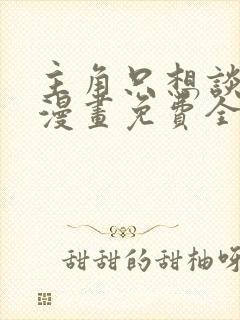 主角只想談
漫畫免費全
甜甜的甜柚呀